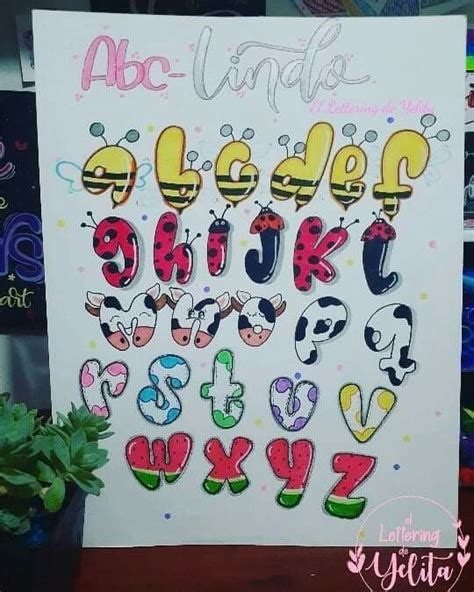 Abc-Lindo
El Lettering de Yelita
abcdef
ghijkl
mnopq
rstuv
wxyz
art
el
Lettering
de
Yelita